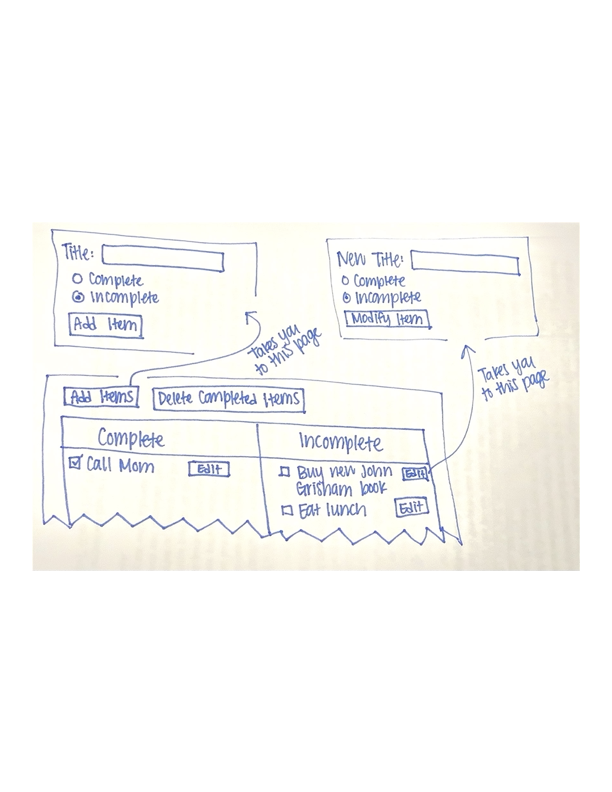 Title:
Complete
Incomplete
Add Item
New Title:
Complete
Incomplete
Modify Item
Takes you
to this page
Takes you
to this page
Add Items
Delete Completed Items
Complete
Incomplete
Call Mom
Edit
Buy new John
Grisham book
Edit
Eat lunch
Edit